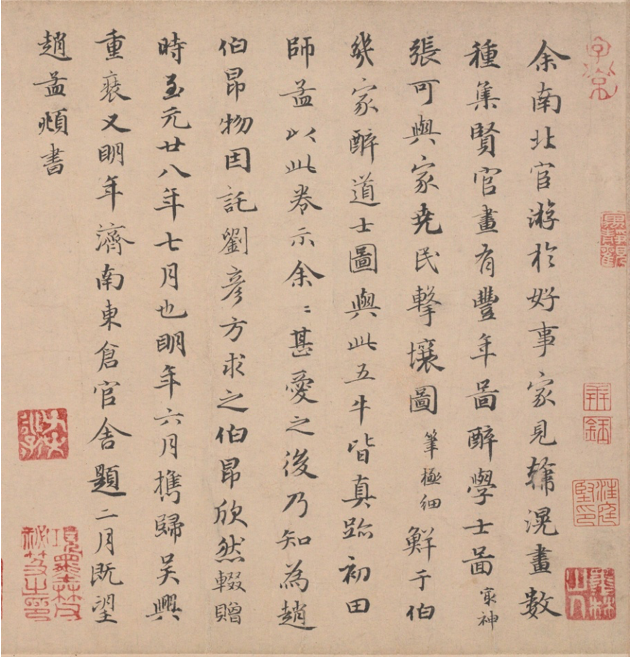 余南北宦游於好事家見韓滉畫數
種集賢官畫有豐年啚醉學士啚冣神
張可與家堯民擊壤圖筆極細鮮于伯
幾家醉道士圖與此五牛皆真跡初田
師孟以此卷示余〻甚愛之後乃知為趙
伯昂物因託劉彥方求之伯昂欣然輟贈
時至元廿八年七月也明年六月攜歸吳興
重裝又明年濟南東倉官舍題二月既望
趙孟頫書
子京
墨林山人
項墨林父祕笈之印